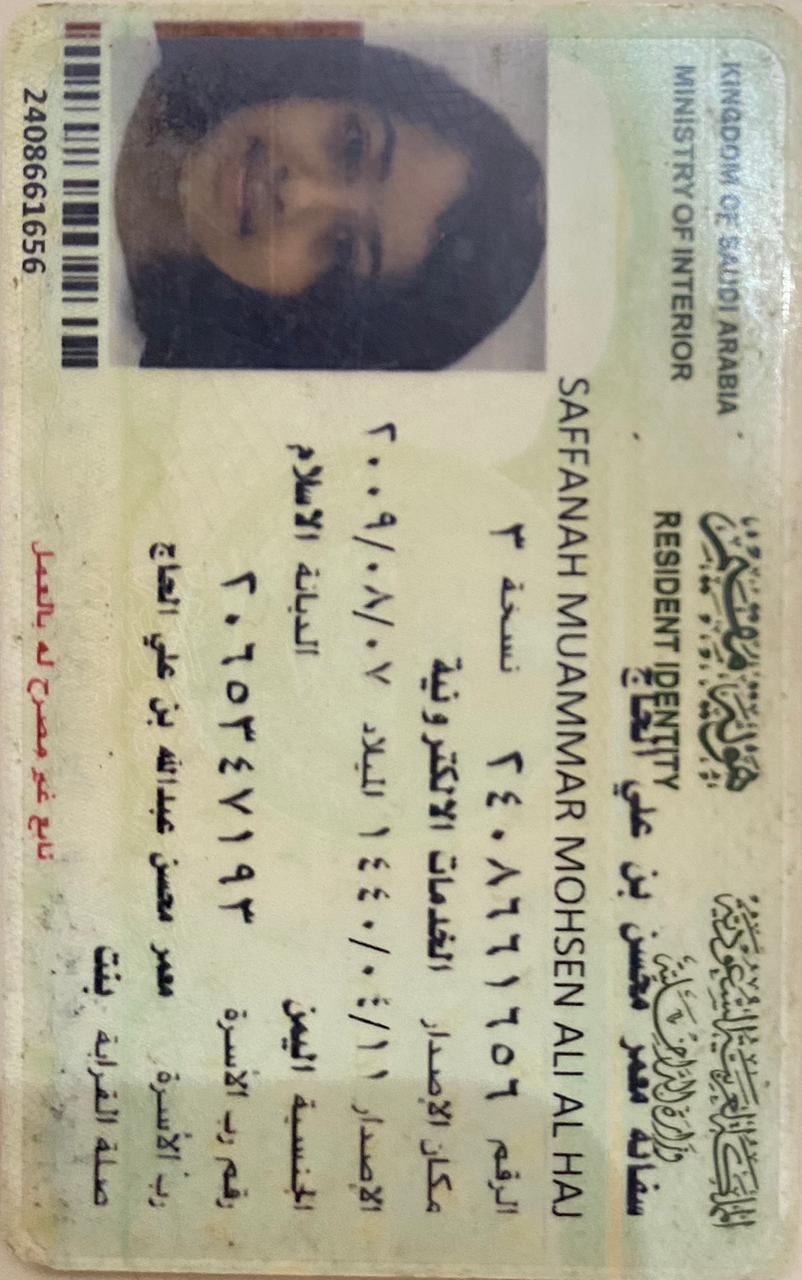 المملكة العربية السعودية
وزارة الداخلية
هوية مقيم
KINGDOM OF SAUDI ARABIA
MINISTRY OF INTERIOR
RESIDENT IDENTITY
سفانه معمر محسن بن علي الحاج
SAFFANAH MUAMMAR MOHSEN ALI AL HAJ
الرقم ٢٤٠٨٦٦١٦٥٦ نسخة ٣
مكان الإصدار الخدمات الالكترونية
الإصدار ١٤٤٠/٠٤/١١ الميلاد ٢٠٠٩/٠٨/٠٧
الجنسية اليمن الديانة الاسلام
رقم رب الأسرة ٢٠٦٥٣٤٧١٩٣
رب الأسرة معمر محسن عبدالله بن علي الحاج
صلة القرابة بنت
تابع غير مصرح له بالعمل
2408661656